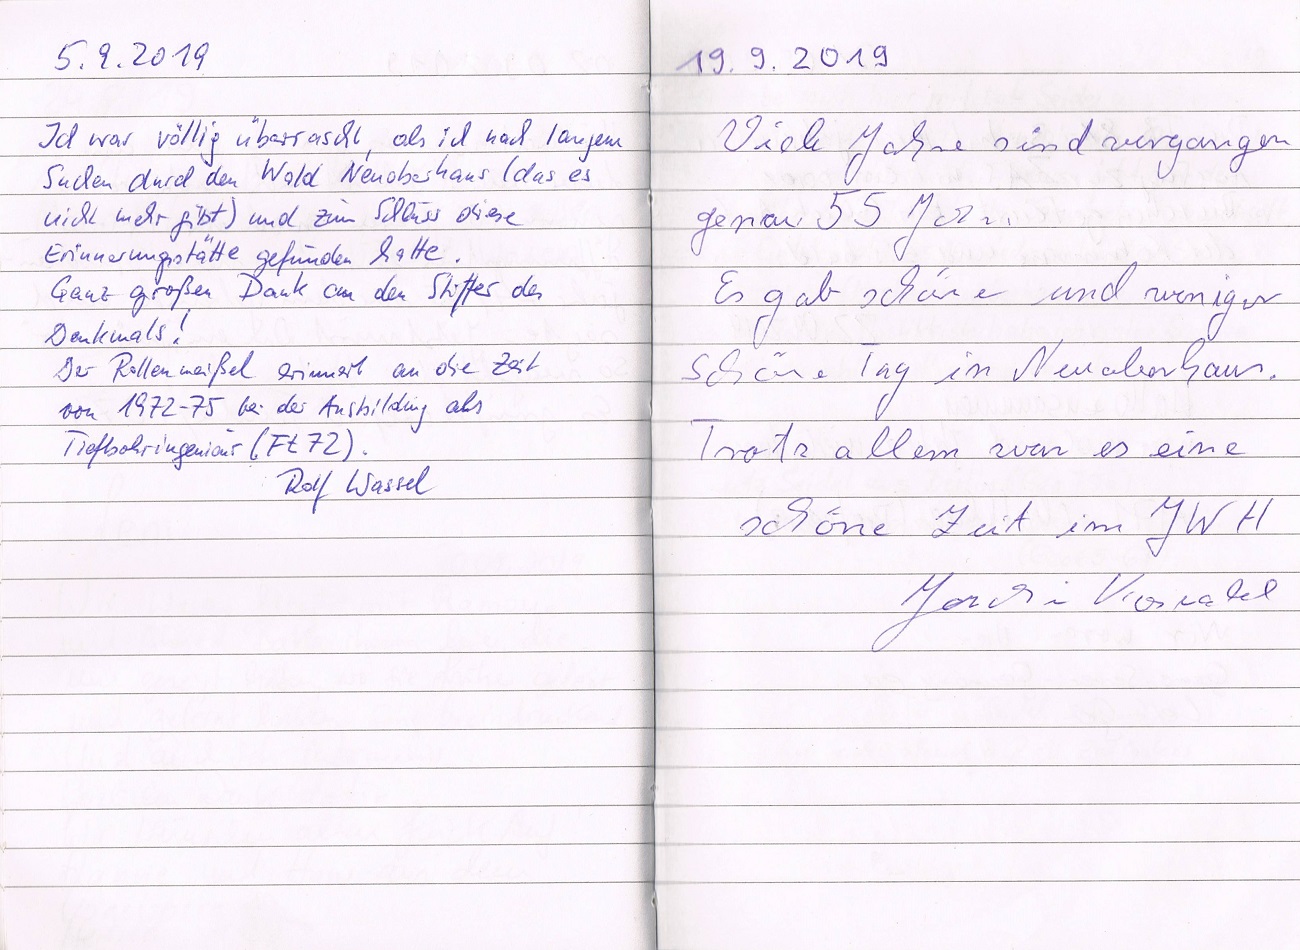 5.9.2019
Ich war völlig überrascht, als ich nach langem
Suchen durch den Wald Neuoberhaus (das es
nicht mehr gibt) und zum Schluss diese
Erinnerungsstätte gefunden hatte.
Ganz großen Dank an den Stifter des
Denkmals!
Der Rollenmeißel erinnert an die Zeit
von 1972-75 bei der Ausbildung als
Tiefbohringenieur (Ft 72).
Rolf Wassel
19.9.2019
Viele Jahre sind vergangen
genau 55 Jahr.
Es gab schöne und weniger
schöne Tag in Neuoberhaus.
Trotz allem war es eine
schöne Zeit im JWH